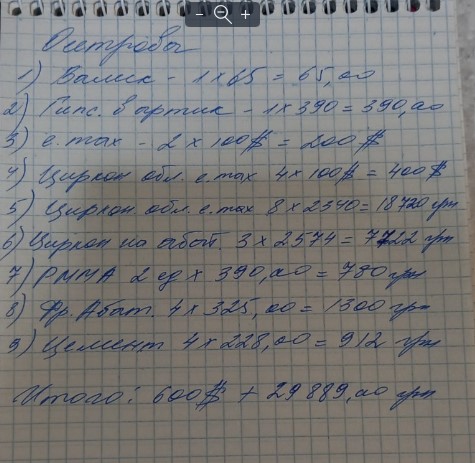 Остров
1) Валик - 1 x 65 = 65,00
2) Гипс. в артик - 1 x 390 = 390,00
3) e.max - 2 x 100$ = 200$
4) Циркон обл. e.max 4 x 100$ = 400$
5) Циркон обл. e.max 8 x 2340 = 18720 грн
6) Циркон на абат 3 x 2574 = 7722 грн
7) РММА 2 ед x 390,00 = 780 грн
8) Фр. Абат. 4 x 325,00 = 1300 грн
9) Цемент 4 x 228,00 = 912 грн
Итого: 600$ + 29889,00 грн